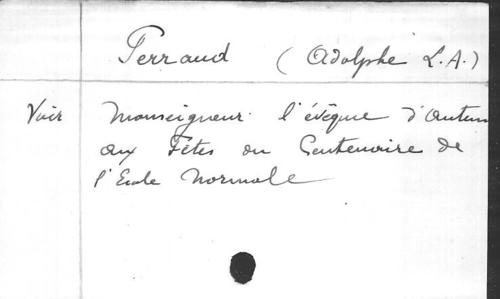 Perraud (Adolphe L.A.)
Voir Monseigneur l'évêque d'Autun
aux Fêtes du Centenaire de
l'Ecole Normale